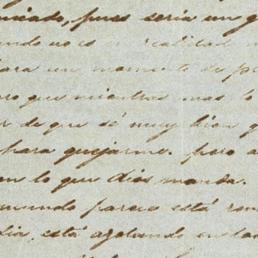 nicado, pues seria un g
undo no es en realidad
para un momento de pa
ro que mientras mas lo
r de que sé muy bien q
para quejarme. pero a
on lo que dios manda.
mundo parece está
dia, está azotando